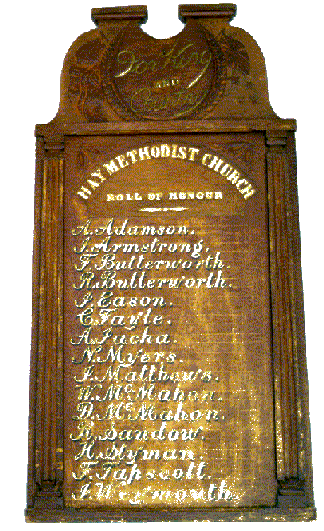 For King
AND
Country
HAY METHODIST CHURCH
ROLL OF HONOUR
A. Adamson.
J. Armstrong.
F. Butterworth.
R. Butterworth.
J. Eason.
C. Fayle.
A. Jacha.
N. Myers.
J. Matthews.
W. McMahon.
D. McMahon.
Sandow.
H. Styman.
F. Tapscott.
J. Weymouth.